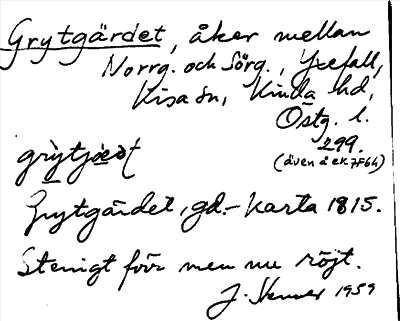 Grytgärdet, åker mellan
Norrg. och Sörg., Yxefall,
Kisa sn, Kinda hd,
Östg. l.
299.
(även å ek 7F6h)
Grytgärdet, gd.- karta 1815.
Stenigt förr men nu röjt.
J. 1959